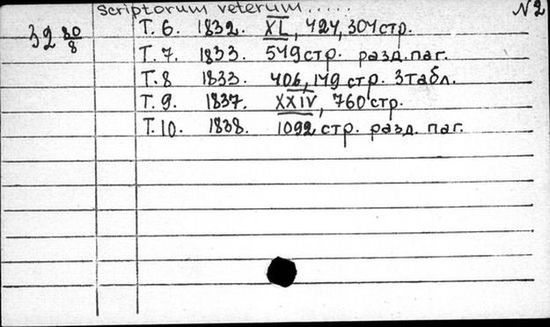 scriptorum veterum..... N 2
32 80/8
Т. 6. 1832. XL, 424, 304 стр.
Т. 7. 1833. 549 стр. разд. паг.
Т. 8 1833. 406, 149 стр. 3 табл.
Т. 9. 1837. XXIV, 760 стр.
Т. 10. 1838. 1092 стр. разд. паг.